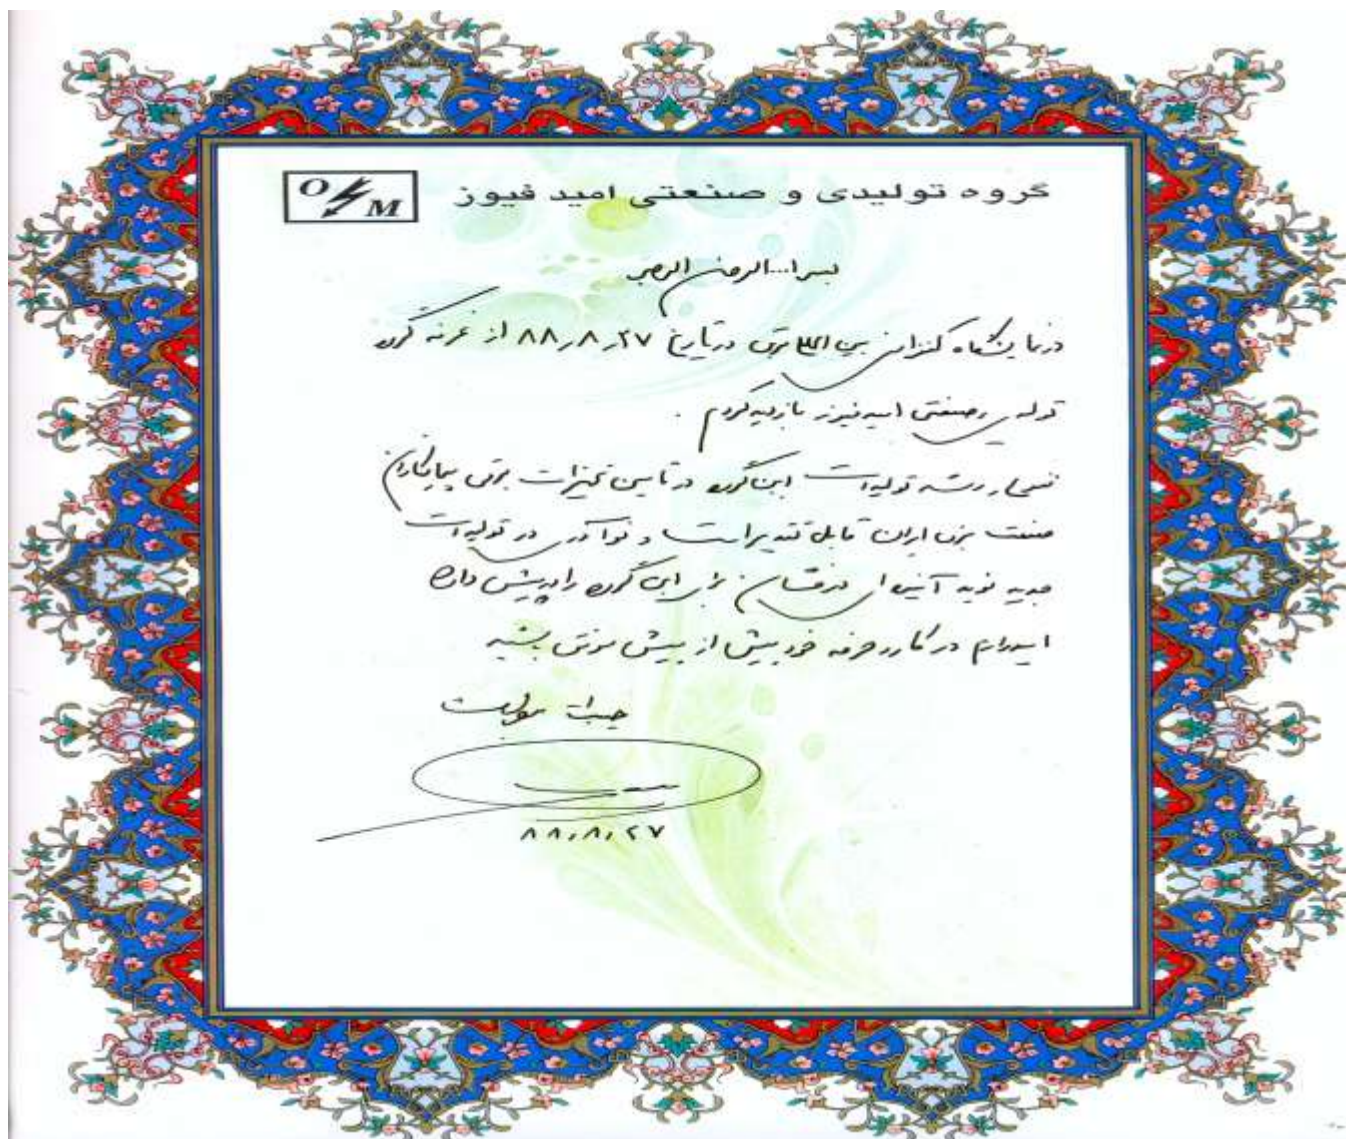 گروه تولیدی و صنعتی امید فیوز
O M
بسم ا... الرحمن الرحیم
در نمایشگاه کنفرانس بین المللی برق در تاریخ ۸۸٫۸٫۲۷ از غرفه گروه
تولیدی و صنعتی امید فیوز بازدید کردم .
تولیدات این گروه در تامین تجهیزات برقی پیمانکاران
صنعت برق ایران قابل تقدیر است و نوآوری در تولیدات
جدید نوید آینده ای درخشان برای این گروه را در پیش دارد
امیدوارم در کار و حرفه خود بیش از پیش موفق باشید
۸۸٫۸٫۲۷